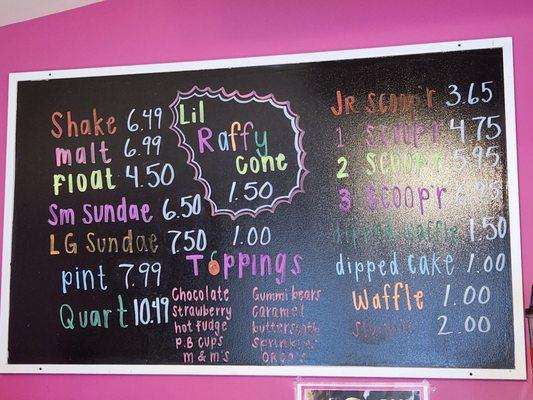 Shake 6.49
malt 6.99
float 4.50
Sm Sundae 6.50
LG Sundae 7.50
pint 7.99
Quart 10.49
Lil
Raffy
cone
1.50
1.00
Toppings
Chocolate
Strawberry
hot fudge
P.B cups
m & m's
Gummi bears
caramel
butterscotch
sprinkles
oreo's
JR scoop'r 3.65
1 scoop'r 4.75
2 scoop'r 5.95
3 scoop'r 6.95
dipped waffle 1.50
dipped cake 1.00
waffle 1.00
2.00